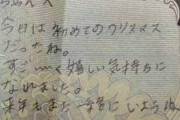 ちゃんへ
今日は初めてのクリスマス
だったね。
すごーく嬉しい気持ちに
なれました。
来年もまた一緒にいようね